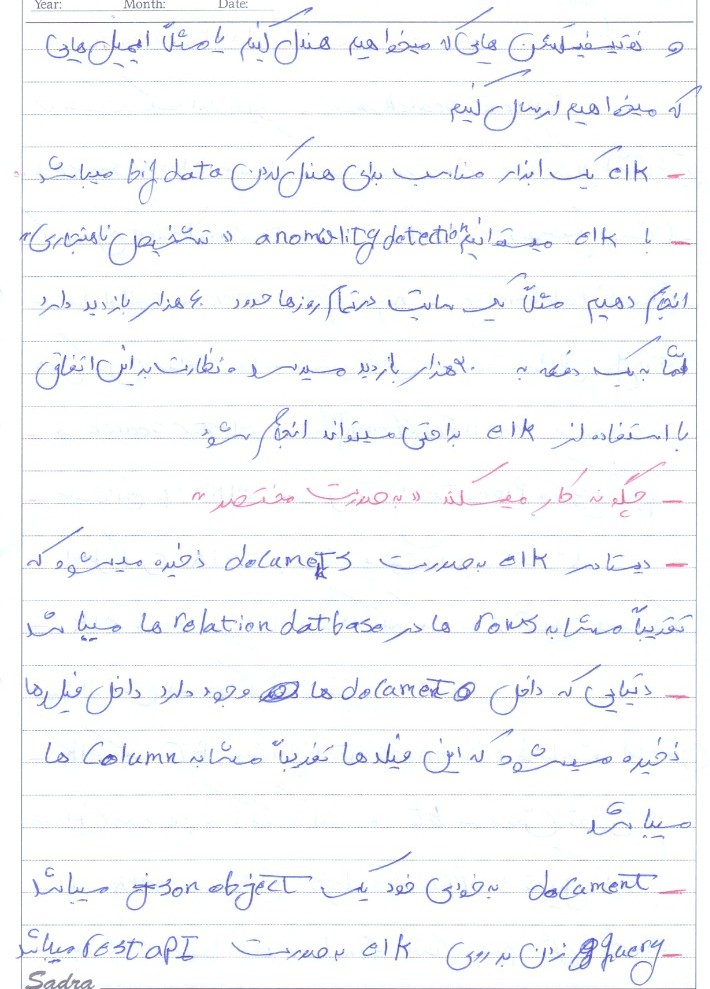 Year: Month: Date:
و نوتیفیکیشن هایی که میخواهیم هندل کنیم یا مثلاً ایمیل هایی
که میخواهیم ارسال کنیم
- elk یک ابزار مناسب برای هندل کردن big data میباشد
- با elk میتوانیم anomality detection « تشخیص ناهنجاری »
انجام دهیم مثلاً یک سایت در تمام روزها حدود ۶۰ هزار بازدید دارد
اما به یک دفعه به ۲۰ هزار بازدید میرسد و نظارت به این اتفاق
با استفاده از elk براحتی میتواند انجام شود
- چگونه کار میکند « به صورت مختصر »
- دیتا در elk به صورت documets ذخیره میشود که
تقریباً مشابه rows ها در relation datbase ها میباشد
- دیتایی که داخل document ها وجود دارد داخل فیلدها
ذخیره میشود که این فیلدها تقریباً مشابه Column ها
میباشد
- document به خودی خود یک json object میباشد
- query زدن به روی elk به صورت rest API میباشد
Sadra